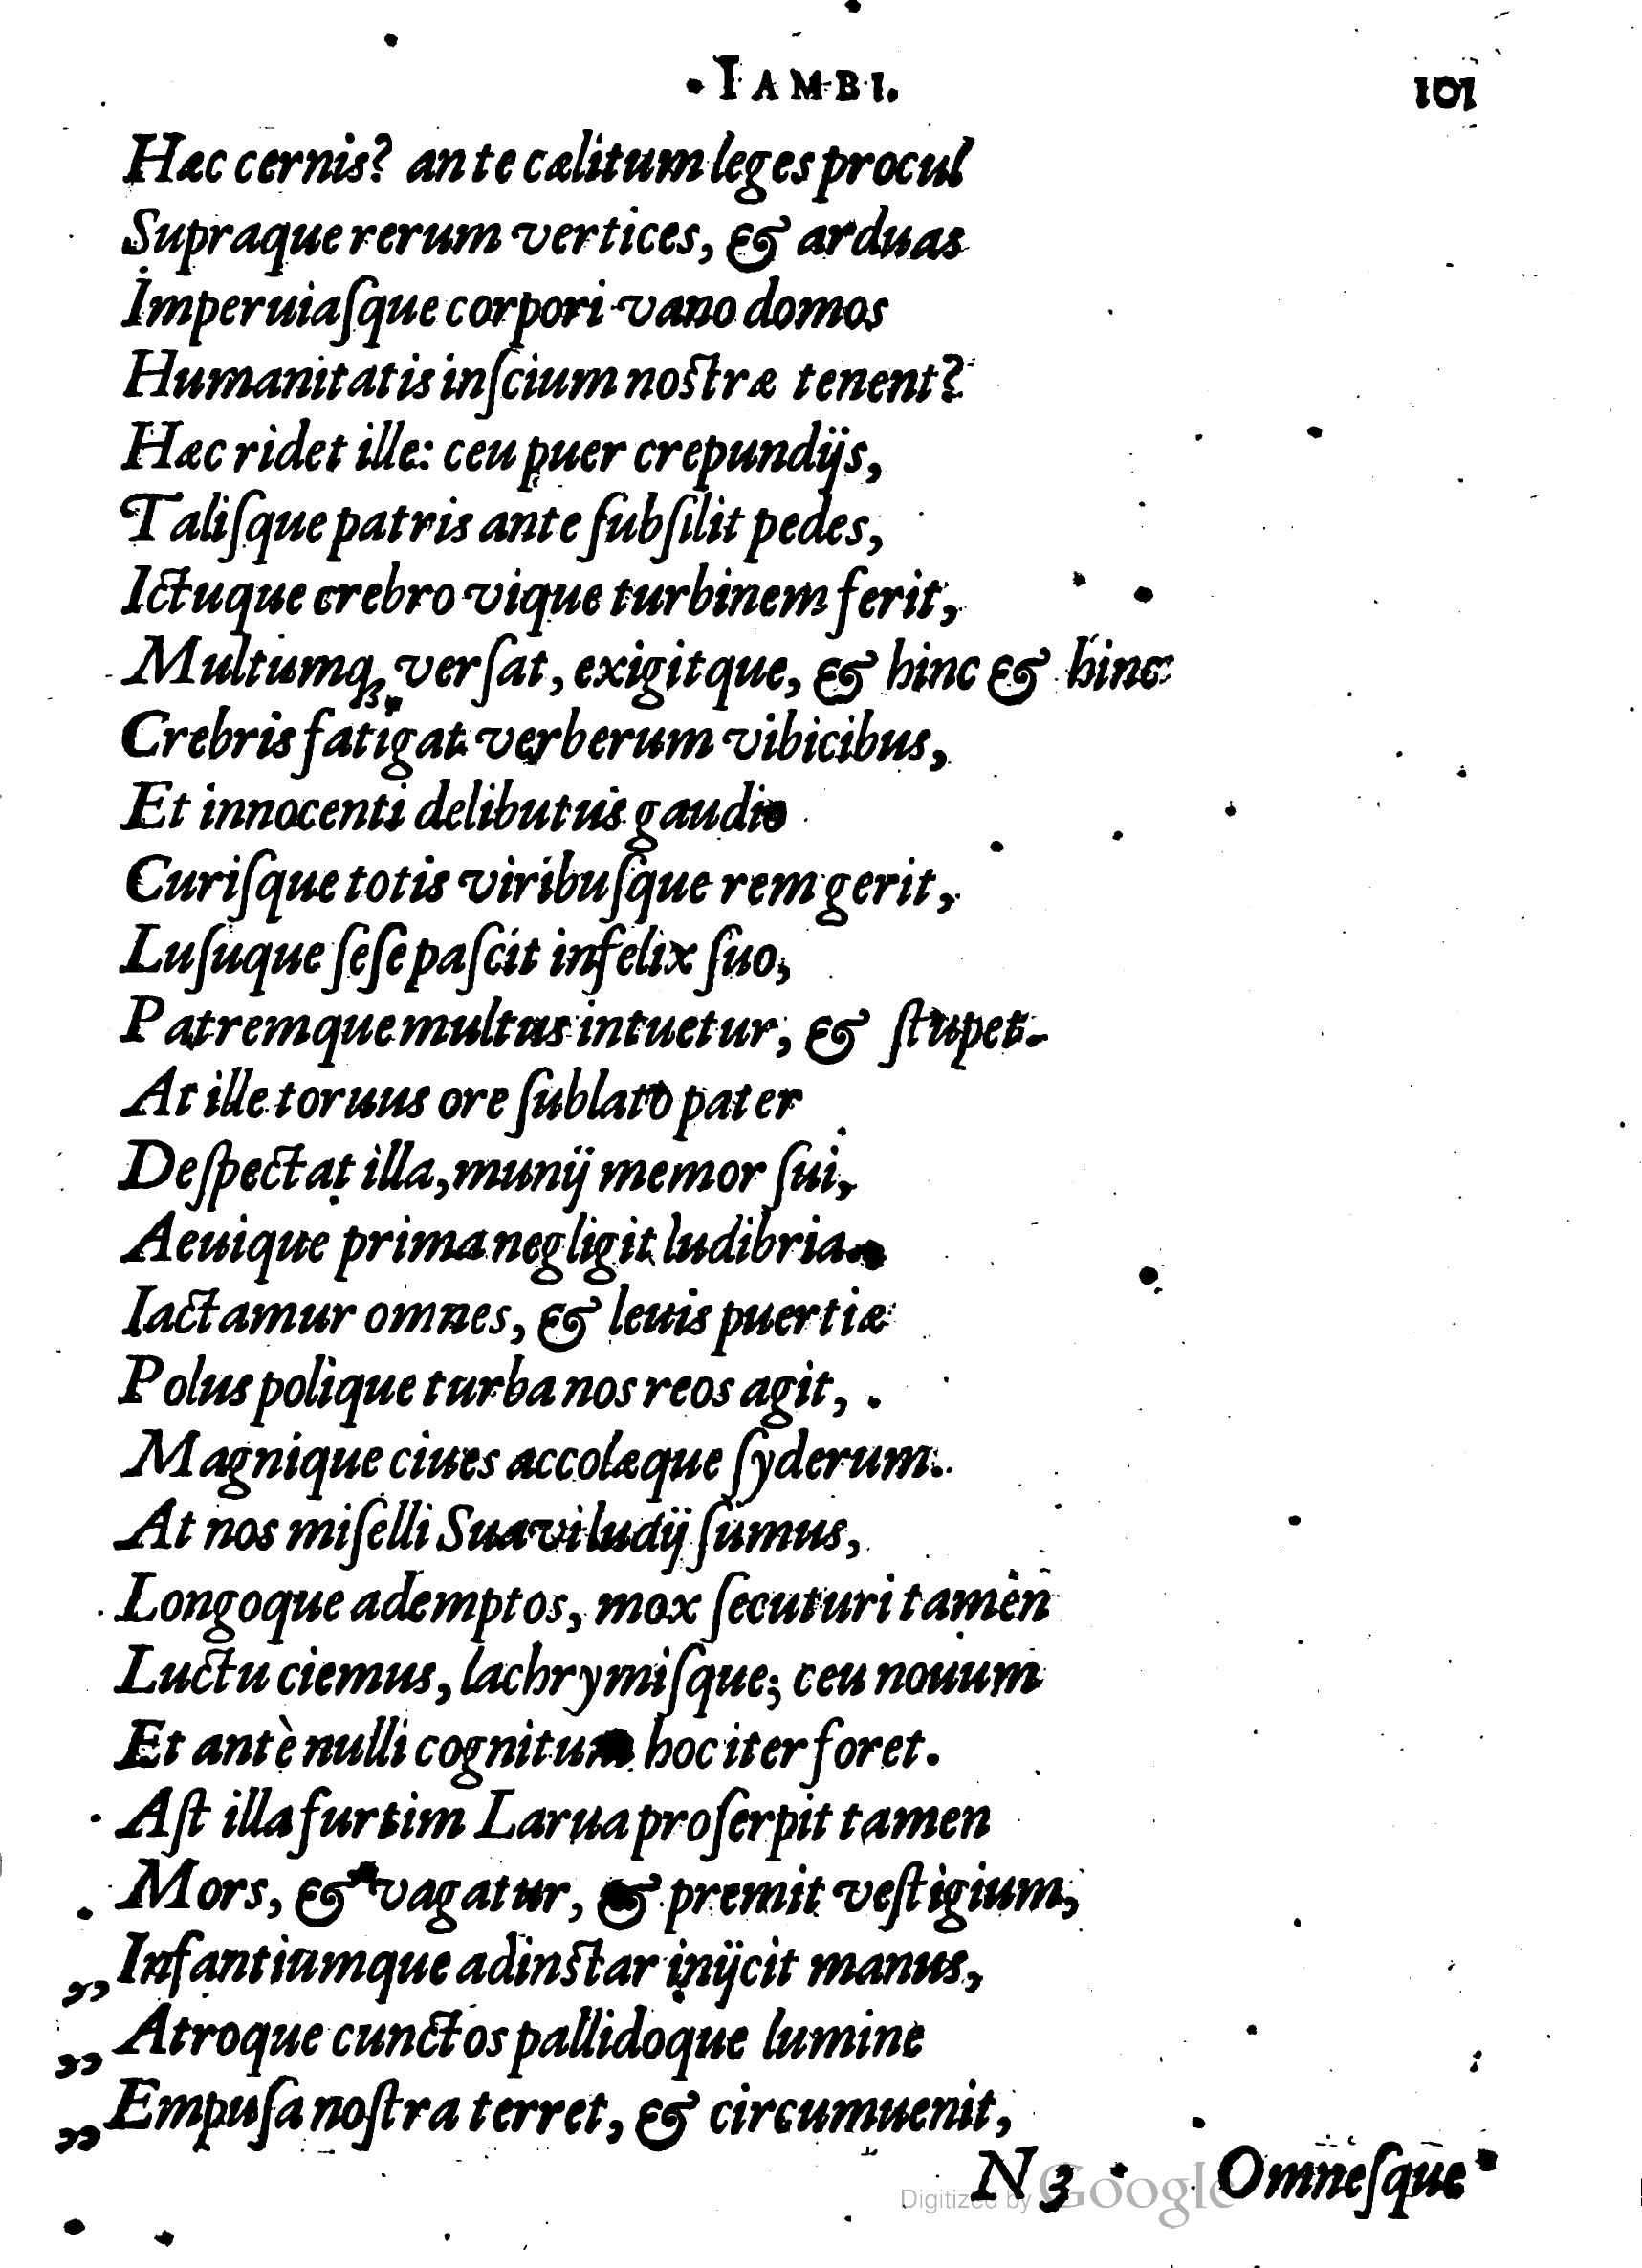 IAMBI. 101
Hæc cernis? ante cælitum leges procul
Supraque rerum vertices, & arduas
Imperuiaſque corpori vano domos
Humanitatis inſcium noſtræ tenent?
Hæc ridet ille: ceu puer crepundijs,
Taliſque patris ante ſubſilit pedes,
Ictuque crebro vique turbinem ferit,
Multumq; verſat, exigitque, & hinc & hinc
Crebris fatigat verberum vibicibus,
Et innocenti delibutus gaudio
Curiſque totis viribuſque rem gerit,
Luſuque ſeſe paſcit infelix ſuo,
Patremque multus intuetur, & ſtupet.
At ille toruus ore ſublato pater
Deſpectat illa, munij memor ſui,
Aeuique prima negligit ludibria.
Iactamur omnes, & leuis puertiæ
Polus polique turba nos reos agit,
Magnique ciues accolæque ſyderum.
At nos miſelli Suaviludij ſumus,
Longoque ademptos, mox ſecuturi tamen
Luctu ciemus, lachrymiſque; ceu nouum
Et antè nulli cognitum hoc iter foret.
Aſt illa furtim Larua proſerpit tamen
Mors, & vagatur, & premit veſtigium,
„ Infantiumque adinſtar inijcit manus,
„ Atroque cunctos pallidoque lumine
„ Empuſa noſtra terret, & circumuenit,
N 3 Omneſque
Digitized by Google